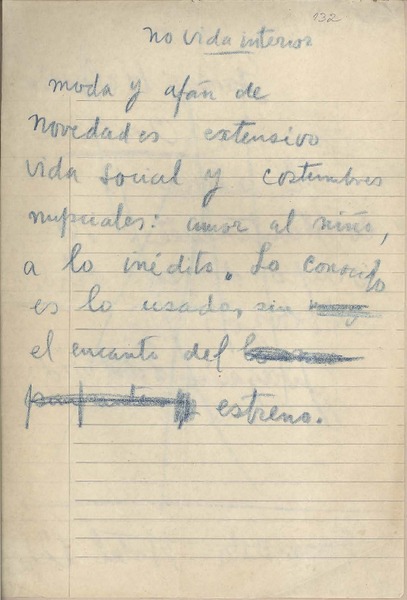 132
no vida interior
moda y afán de
novedades extensivo
vida social y costumbres
nupciales: amor al niño,
a lo inédito. Lo conocido
es lo usado, sin
el encanto del
estreno.